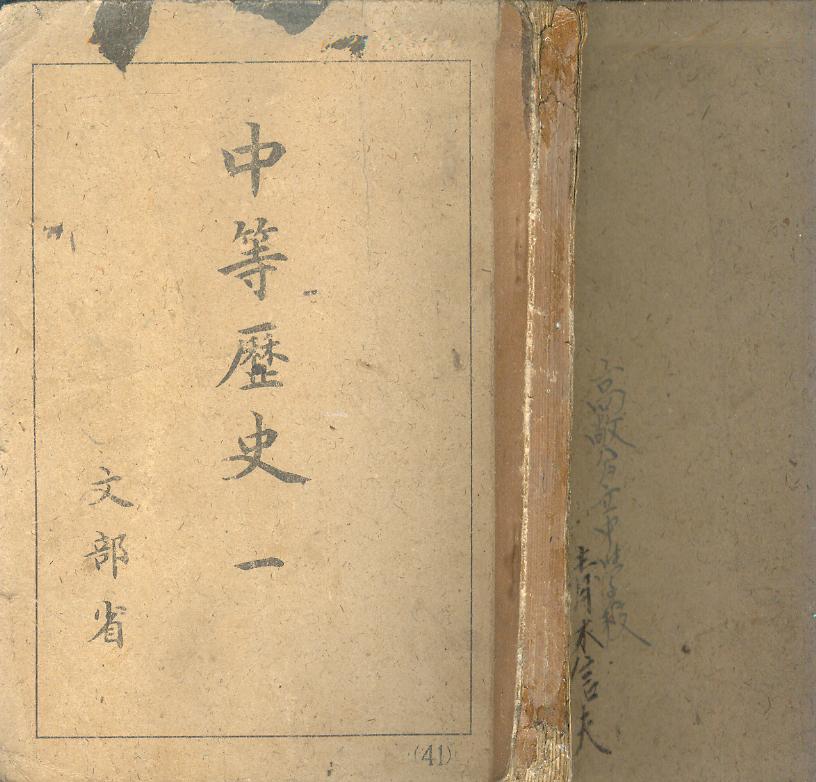 中等歷史 一
文部省
(41)
高敞
青木信夫